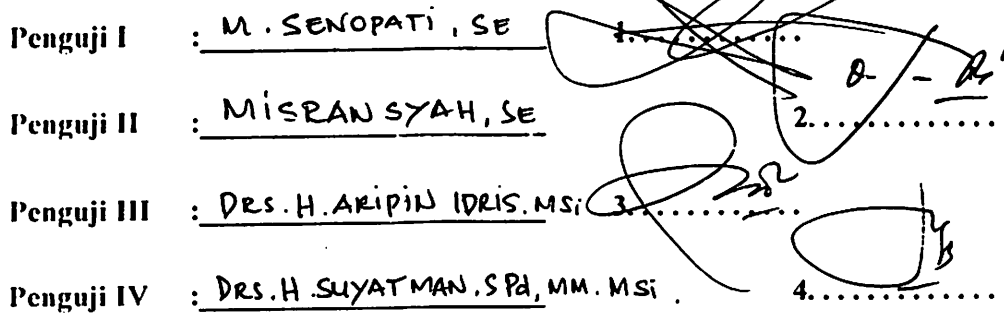 Penguji I : M. SENOPATI, SE 1..............
Penguji II : MISRAN SYAH, SE 2..............
Penguji III : DRS. H. ARIPIN IDRIS. MSi 3..............
Penguji IV : DRS. H. SUYATMAN. SPd, MM. MSi. 4..............